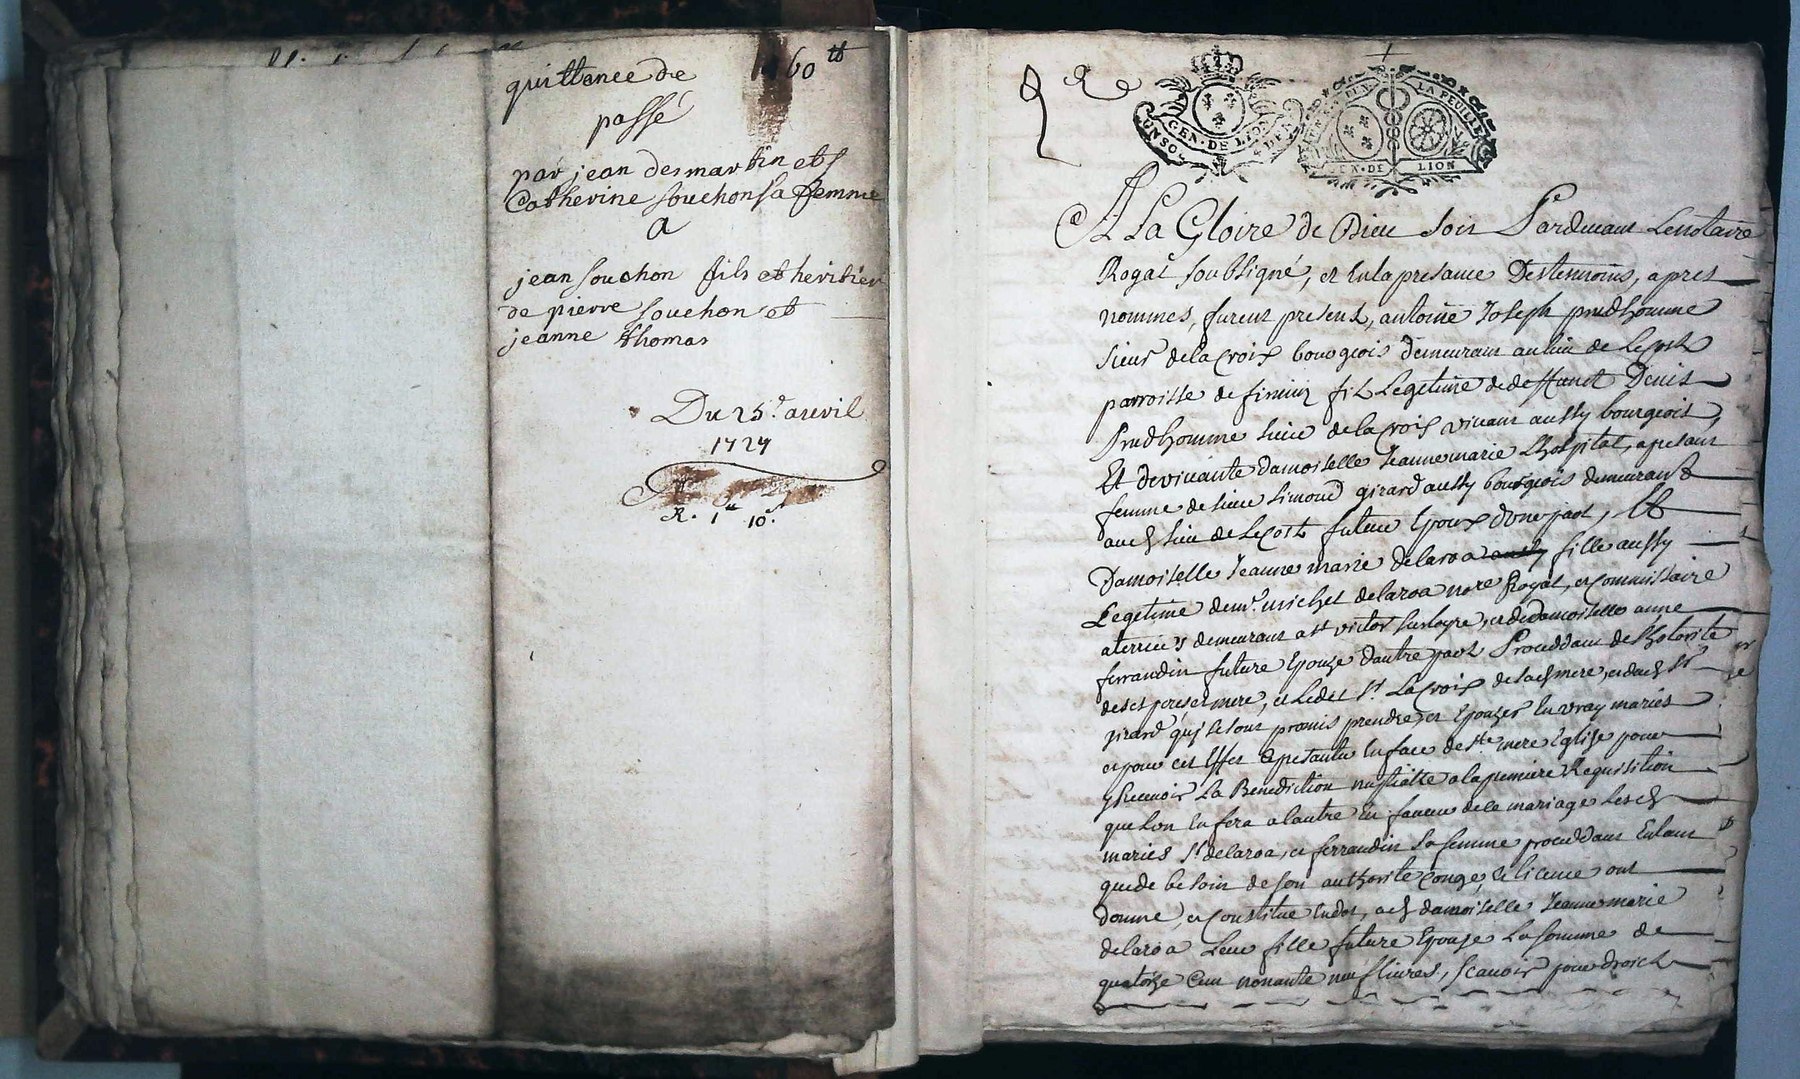 quittance de 60tt
passé
par jean desmartin et
Catherine souchon sa femme
a
jean souchon fils et heritier
de pierre souchon et
jeanne thomas
Du 25.e avril
1724
R. 1tt 10s
GEN·DE LION
UN SOL
LA FEUILLE
GEN·DE LION
A La Gloire de Dieu soit Pardevant Le notaire
Royal soubsigné, et en la presance Des temoins, apres
nommes, furent present, antoine Joseph prudhomme
sieur de la croix bourgeois demeurant au lieu de Le
parroisse de firminy fil Legetime de deffunct Denis
Prudhomme sieur de la croix vivant aussy bourgeois
Et de vivante damoiselle Jeanne marie Lhospital, a presant
femme de sieur Simond girard aussy bourgeois demeurant
aud lieu de Le futeur Epoux d'une part, Et
Damoiselle Jeanne marie delaroa aussy fille aussy
Legetime de mr. michel delaroa nore Royal, et commissaire
a terriers demeurant a st victor sur loyre, et de damoiselle anne
ferrandin future Epouze dautre part Proceddant de lhotorité
de ses pere et mere, et Ledit sr. La Croix de sad mere, et dud sr
girard qui se sont promis prendre et Epouzer en vray mariés
et pour cet effet se presanter en face de ste mere Eglize pour
y Recevoir La Benediction nuptialle a la premiere Requisition
que Lon En fera a lautre En faveur de ce mariage Lesd
mariés sr. delaroa, et ferrandin sa femme procedant Entant
que de besoin de son authorite congé, et licence ont
donné, et constitué En dot, a lad damoiselle Jeanne marie
delaroa Leur fille future Epouze La somme de
quatorze Cent nonante neuf livres, scavoir pour droict